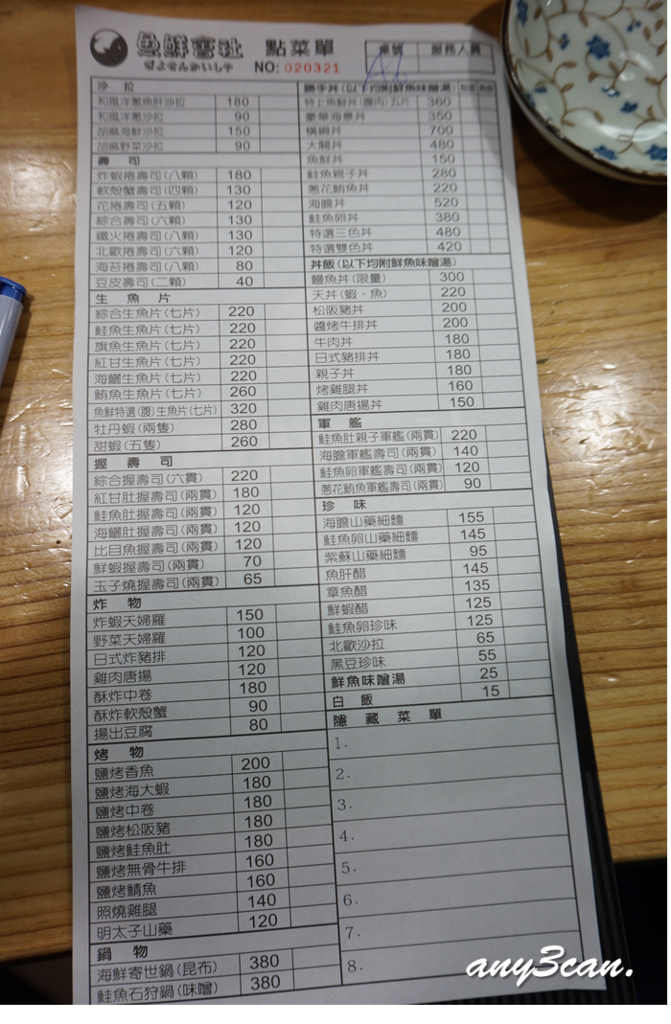 魚鮮會社 點菜單
ぎょせんかいしゃ NO: 020321
桌號 服務人員
A2
沙 拉
和風洋蔥魚肝沙拉 180
和風洋蔥沙拉 90
胡麻海鮮沙拉 150
胡麻野菜沙拉 90
壽 司
炸蝦捲壽司(八顆) 180
軟殼蟹壽司(四顆) 130
花捲壽司(五顆) 120
綜合壽司(六顆) 130
鐵火捲壽司(八顆) 130
北歐捲壽司(六顆) 120
海苔捲壽司(八顆) 80
豆皮壽司(二顆) 40
生 魚 片
綜合生魚片(七片) 220
鮭魚生魚片(七片) 220
旗魚生魚片(七片) 220
紅甘生魚片(七片) 220
海鱺生魚片(七片) 220
鮪魚生魚片(七片) 260
魚鮮特選(腹)生魚片(七片) 320
牡丹蝦(兩隻) 280
甜蝦(五隻) 260
握 壽 司
綜合握壽司(六貫) 220
紅甘肚握壽司(兩貫) 180
鮭魚肚握壽司(兩貫) 120
海鱺肚握壽司(兩貫) 120
比目魚握壽司(兩貫) 120
鮮蝦握壽司(兩貫) 70
玉子燒握壽司(兩貫) 65
炸 物
炸蝦天婦羅 150
野菜天婦羅 100
日式炸豬排 120
雞肉唐揚 120
酥炸中卷 180
酥炸軟殼蟹 90
揚出豆腐 80
烤 物
鹽烤香魚 200
鹽烤海大蝦 180
鹽烤中卷 180
鹽烤松阪豬 180
鹽烤鮭魚肚 180
鹽烤無骨牛排 160
鹽烤鯖魚 160
照燒雞腿 140
明太子山藥 120
鍋 物
海鮮寄世鍋(昆布) 380
鮭魚石狩鍋(味噌) 380
勝手丼(以下均附鮮魚味噌湯)
特上魚鮮丼(腹肉)五片 360
豪華海景丼 350
橫綱丼 700
大關丼 480
魚鮮丼 150
鮭魚親子丼 280
蔥花鮪魚丼 220
海膽丼 520
鮭魚卵丼 380
特選三色丼 480
特選雙色丼 420
丼飯(以下均附鮮魚味噌湯)
鰻魚丼(限量) 300
天丼(蝦、魚) 220
松阪豬丼 200
醬烤牛排丼 200
牛肉丼 180
日式豬排丼 180
親子丼 180
烤雞腿丼 160
雞肉唐揚丼 150
軍 艦
鮭魚肚親子軍艦(兩貫) 220
海膽軍艦壽司(兩貫) 140
鮭魚卵軍艦壽司(兩貫) 120
蔥花鮪魚軍艦壽司(兩貫) 90
珍 味
海膽山藥細麵 155
鮭魚卵山藥細麵 145
紫蘇山藥細麵 95
魚肝醋 145
章魚醋 135
鮮蝦醋 125
鮭魚卵珍味 125
北歐沙拉 65
黑豆珍味 55
鮮魚味噌湯 25
白 飯 15
隱 藏 菜 單
1.
2.
3.
4.
5.
6.
7.
8.
any3can.